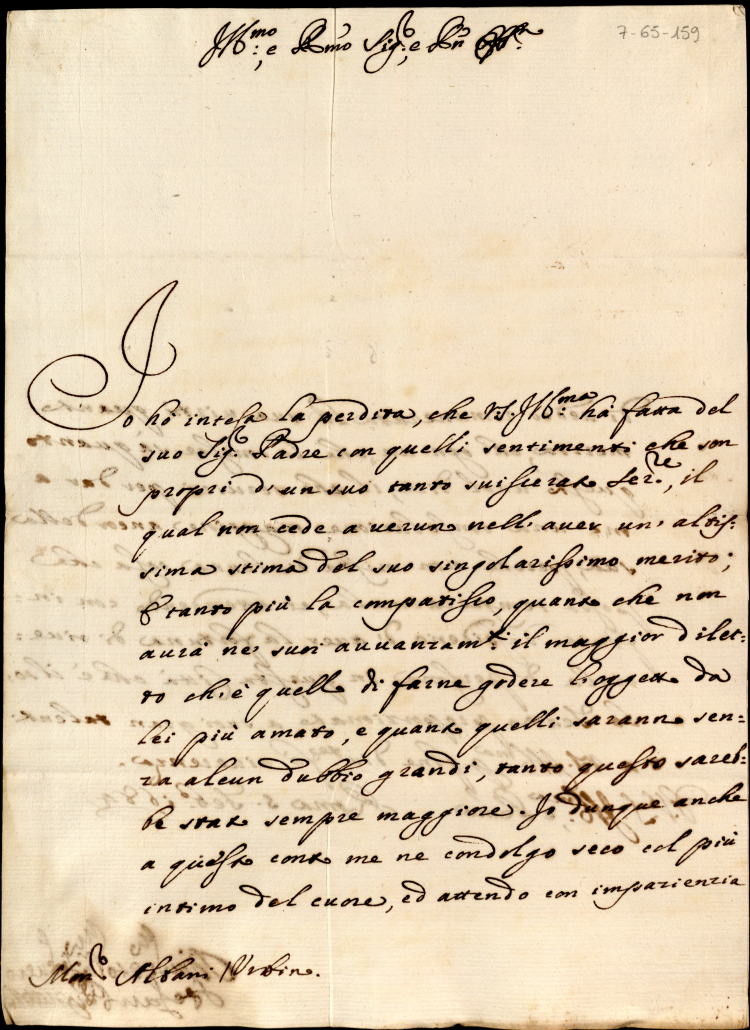 Ill:mo, e R:mo Sig:r, e Pn
7-65-159
Io hò intesa la perdita, che VS. Ill:ma hà fatta del
suo Sig:r Padre con quelli sentimenti che son
propri d'un suo tanto suiscerato Ser:re, il
qual non cede a veruno nell'aver un'altis=
sima stima del suo singolarissimo merito;
E tanto più la compatisco, quanto che non
aurà ne' suoi auuanzam:ti il maggior dilet=
to ch'è quello di farne godere l'oggetto da
lei più amato, e quanto quelli saranno sen=
za alcun dubbio grandi, tanto questo sareb=
be stato sempre maggiore. Io dunque anche
a questo conto me ne condolgo seco col più
intimo del cuore, ed attendo con impazienza
Mon:r Albani / Urbino.